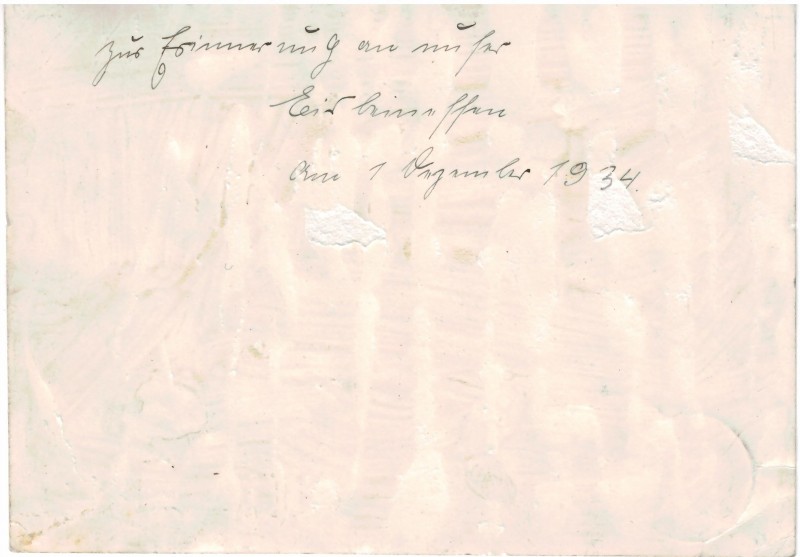 zur Erinnerung an unser
Eisbeinessen
am 1 Dezember 1934.